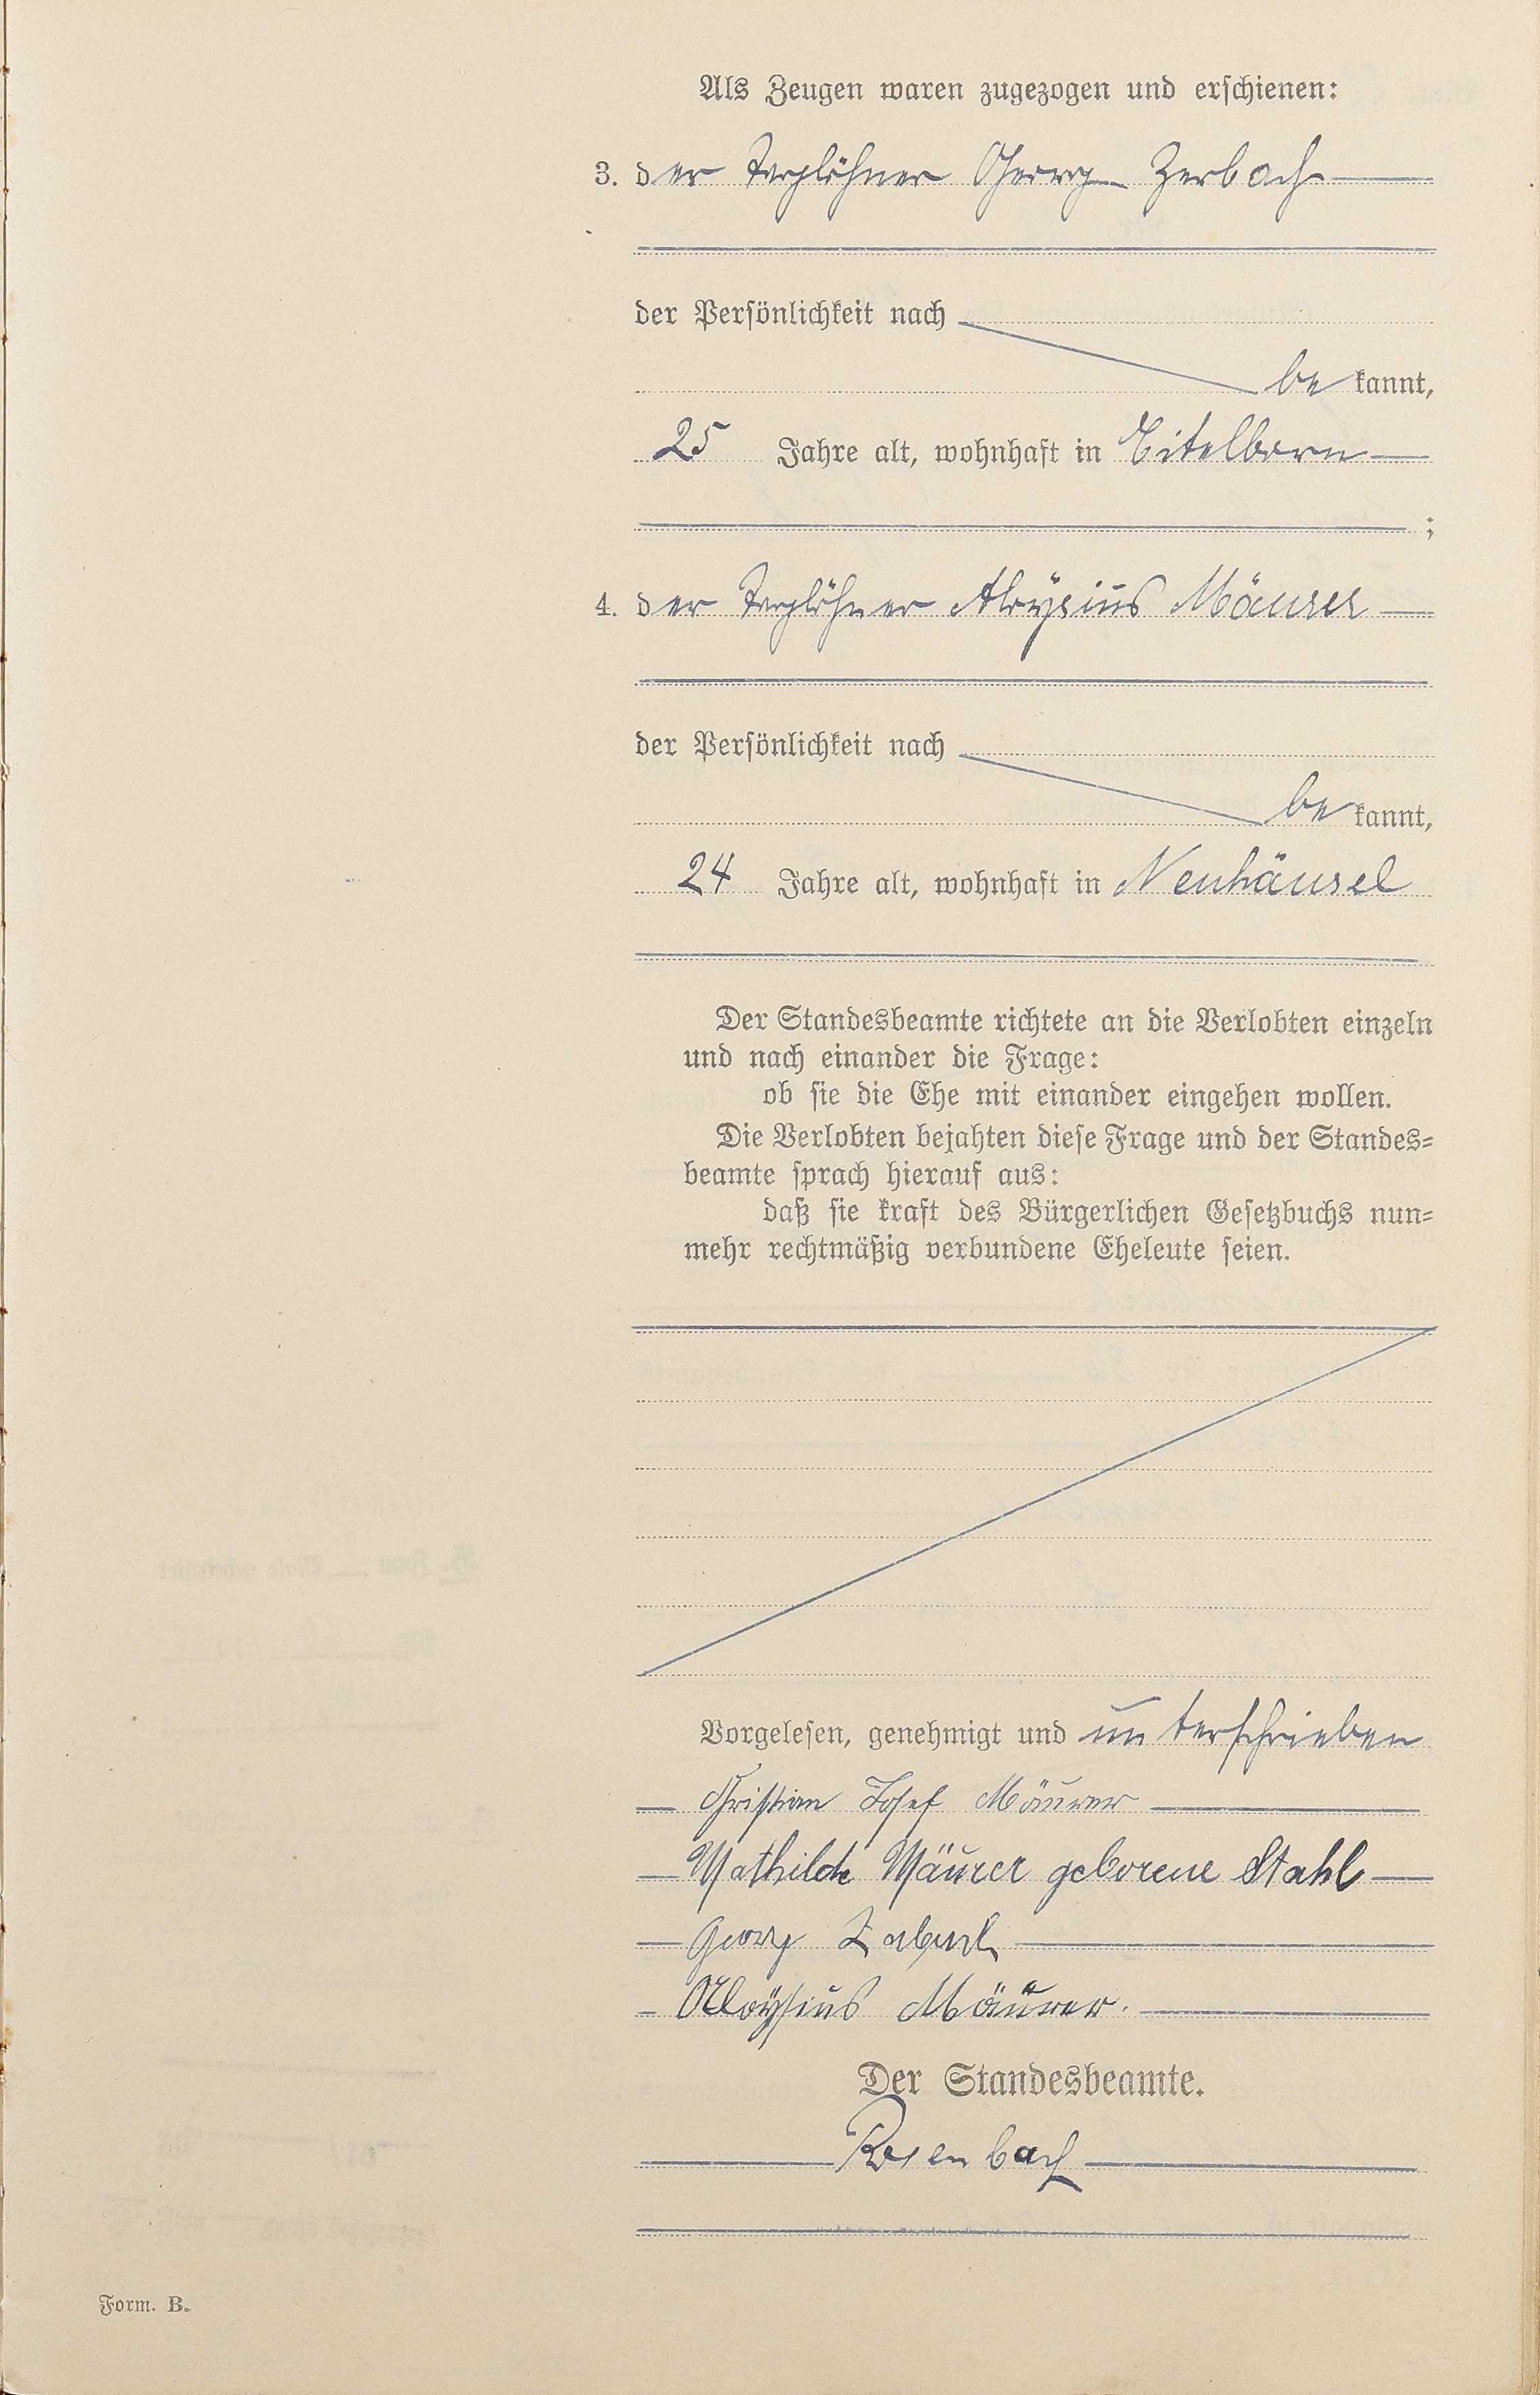 Als Zeugen waren zugezogen und erschienen:
3. der Taglöhner Georg Zerbach
der Persönlichkeit nach
be kannt,
25 Jahre alt, wohnhaft in Eitelborn
;
4. der Taglöhner Aloysius Mäurer
der Persönlichkeit nach
be kannt,
24 Jahre alt, wohnhaft in Neuhäusel
Der Standesbeamte richtete an die Verlobten einzeln
und nach einander die Frage:
ob sie die Ehe mit einander eingehen wollen.
Die Verlobten bejahten diese Frage und der Standes=
beamte sprach hierauf aus:
daß sie kraft des Bürgerlichen Gesetzbuchs nun=
mehr rechtmäßig verbundene Eheleute seien.
Vorgelesen, genehmigt und unterschrieben
Christian Josef Mäurer
Mathilde Mäurer geborene Stahl
Georg Zerbach
Aloÿsius Mäurer.
Der Standesbeamte.
Rosenbach
Form. B.